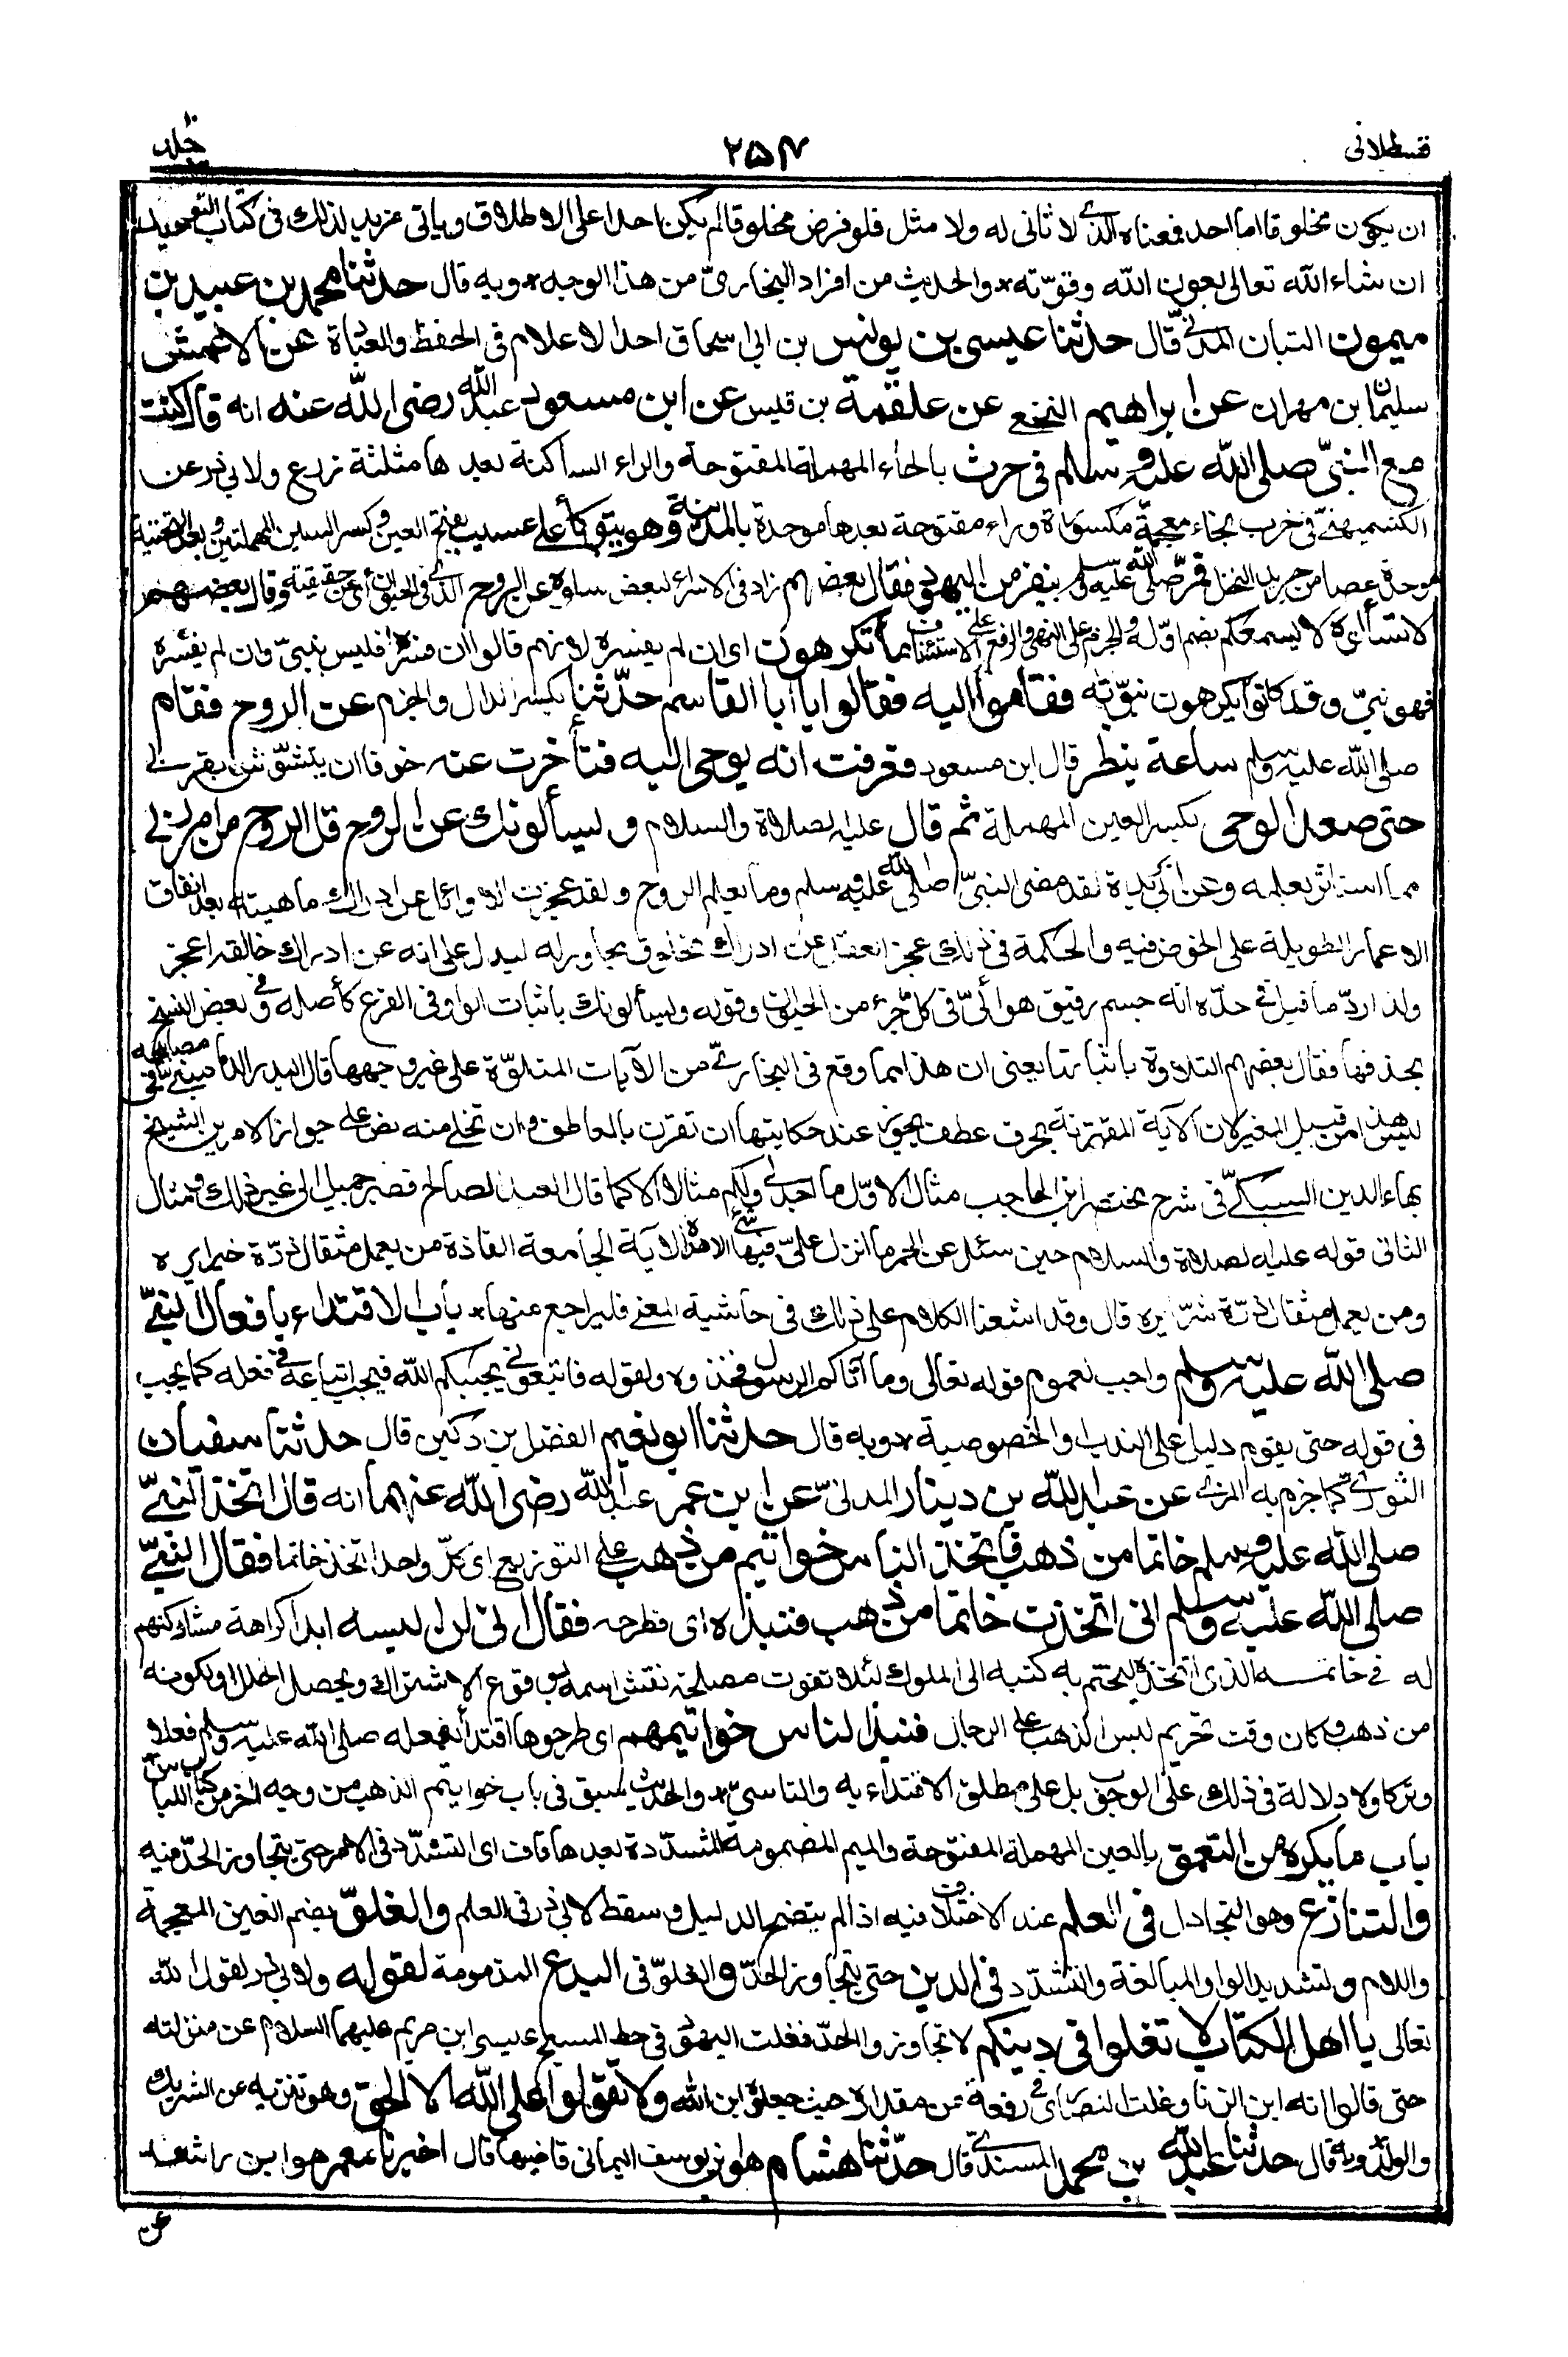 قسطلانی
۲۵۴
جلد ۱۰
ان يكون مخلوقا اما احد فمعناه الذي لا ثانى له ولا مثل فلو فرض مخلوقا لم يكن احدا على الاطلاق وياتى مزيد لذلك فى كتاب التوحيد
ان شاء الله تعالى بعون الله وقوّته * والحديث من افراد البخارىّ من هذا الوجه * وبه قال حدثنا محمد بن عبيد بن
ميمون التبان المدنىّ قال حدثنا عيسى بن يونس بن ابى اسحاق احد الاعلام فى الحفظ والعبادة عن الاعمش
سليمان بن مهران عن ابراهيم النخعى عن علقمة بن قيس عن ابن مسعود عبد الله رضى الله عنه انه قال كنت
مع النبىّ صلى الله عليه وسلم فى حرث بالحاء المهملة المفتوحة والراء الساكنة بعدها مثلثة زرع ولابى ذر عن
الكشميهنىّ فى خرب بخاء معجمة مكسورة وراء مفتوحة بعدها موحدة بالمدينة وهو يتوكأ على عسيب بفتح العين وكسر السين المهملتين وبعد التحتية
موحدة عصا من جريد النخل فمرّ صلى الله عليه وسلم بنفر من اليهود فقال بعضهم زاد فى الاسراء لبعض سلوه عن الروح الذى فى الحيوان أى عن حقيقته وقال بعضهم
لا تسألوه لا يسمعكم بضم اوّله والجزم على النهى والرفع على الاستئناف ما تكرهون اى ان لم يفسره لانهم قالوا ان فسره فليس بنبىّ وان لم يفسره
فهو نبىّ وقد كانوا يكرهون نبوّته فقاموا اليه فقالوا يا أبا القاسم حدّثنا بكسر الدال والجزم عن الروح فقام
صلى الله عليه وسلم ساعة ينظر قال ابن مسعود فعرفت انه يوحى اليه فتأخرت عنه خوفا ان يتشوّش بقربى
حتى صعد الوحى بكسر العين المهملة ثم قال عليه الصلاة والسلام ويسألونك عن الروح قل الروح من امر ربى
مما استاثر بعلمه وعن ابى بريدة لقد مضى النبىّ صلى الله عليه وسلم وما يعلم الروح ولقد عجزت الاوائل عن ادراك ماهيته بعد انفاق
الاعمار الطويلة على الخوض فيه والحكمة فى ذلك عجز العقل عن ادراك مخلوق مجاور له ليدل على انه عن ادراك خالقه اعجز
ولذا ردّ ما قيل فى حدّه انه جسم رقيق هوائىّ فى كل جزء من الحيوان وقوله ويسألونك باثبات الواو فى الفرع كأصله وفى بعض النسخ
بحذفها فقال بعضهم التلاوة باثباتها يعنى ان هذا مما وقع فى البخارىّ من الآيات المتلوّة على غير وجهها قال البدر الدمامينىّ فى مصابيحه
ليس هذا من قبيل المغير لان الآية المقترنة بحرف عطف يجوز عند حكايتها ان تقرن بالعاطف وان تخلى منه نص على جواز الامرين الشيخ
بهاء الدين السبكىّ فى شرح مختصر ابن الحاجب مثال الاوّل ما اجد لى ولكم مثالا الا كما قال العبد الصالح فصبر جميل الى غير ذلك ومثال
الثانى قوله عليه الصلاة والسلام حين سئل عن الحمر ما انزل علىّ فيها شئ الا هذه الآية الجامعة الفاذة من يعمل مثقال ذرّة خيرا يره
ومن يعمل مثقال ذرّة شرّا يره قال وقد اشبعنا الكلام على ذلك فى حاشية المغنى فليراجع منها * باب الاقتداء بافعال النبىّ
صلى الله عليه وسلم واجب لعموم قوله تعالى وما آتاكم الرسول فخذوه ولقوله فاتبعونى يحببكم الله فيجب اتباعه فى فعله كما يجب
فى قوله حتى يقوم دليل على الندب او الخصوصية * وبه قال حدثنا ابو نعيم الفضل بن دكين قال حدثنا سفيان
الثورىّ كما جزم به المزى عن عبد الله بن دينار المدنىّ عن ابن عمر عبد الله رضى الله عنهما انه قال اتخذ النبىّ
صلى الله عليه وسلم خاتما من ذهب فاتخذ الناس خواتيم من ذهب على التوزيع اى كلّ واحد اتخذ خاتما فقال النبىّ
صلى الله عليه وسلم انى اتخذت خاتما من ذهب فنبذه اى فطرحه فقال انى لن البسه ابدا كراهة مشاركتهم
له فى خاتمه الذى اتخذه ليختم به كتبه الى الملوك لئلا تفوت مصلحة نقش اسمه بوقوع الاشتراك ويحصل الخلل او لكونه
من ذهب وكان وقت تحريم لبس الذهب على الرجال فنبذ الناس خواتيمهم اى طرحوها اقتداء بفعله صلى الله عليه وسلم فعلا
وتركا ولا دلالة فى ذلك على الوجوب بل على مطلق الاقتداء به والتاسىّ * والحديث سبق فى باب خواتيم الذهب من وجه اخر من كتاب اللباس
باب ما يكره من التعمق بالعين المهملة المفتوحة والميم المضمومة المشدّدة بعدها قاف اى التشدّد فى الامر حتى يتجاوز الحدّ فيه
والتنازع وهو التجادل فى العلم عند الاختلاف فيه اذا لم يتضح الدليل وسقط لابى ذر فى العلم والغلوّ بضم الغين المعجمة
واللام وتشديد الواو المبالغة والتشدّد فى الدين حتى يتجاوز الحدّ والغلوّ فى البدع المذمومة لقوله ولابى ذر لقول الله
تعالى يا اهل الكتاب لا تغلوا فى دينكم لا تجاوزوا الحدّ فغلت اليهود فى حط المسيح عيسى ابن مريم عليهما السلام عن منزلته
حتى قالوا انه ابن الزنا وغلت النصارى فى رفعه عن مقداره حيث جعلوه ابن الله ولا تقولوا على الله الا الحق وهو تنزيه عن الشريك
والولد * وبه قال حدثنا عبد الله بن محمد المسندىّ قال حدّثنا هشام هو ابن يوسف اليمانى قاضيها قال اخبرنا معمر هو ابن راشد
عن